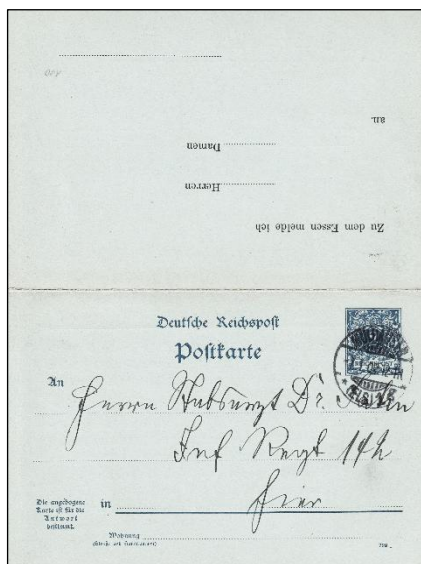 Zu dem Essen melde ich
Herren
Damen
an.
Deutsche Reichspost
Postkarte
An
Herrn Stabsarzt Dr.
Inf Regt 142
hier
in
Die angebogene
Karte ist für die
Antwort
bestimmt.
Wohnung
(Straße und Hausnummer)